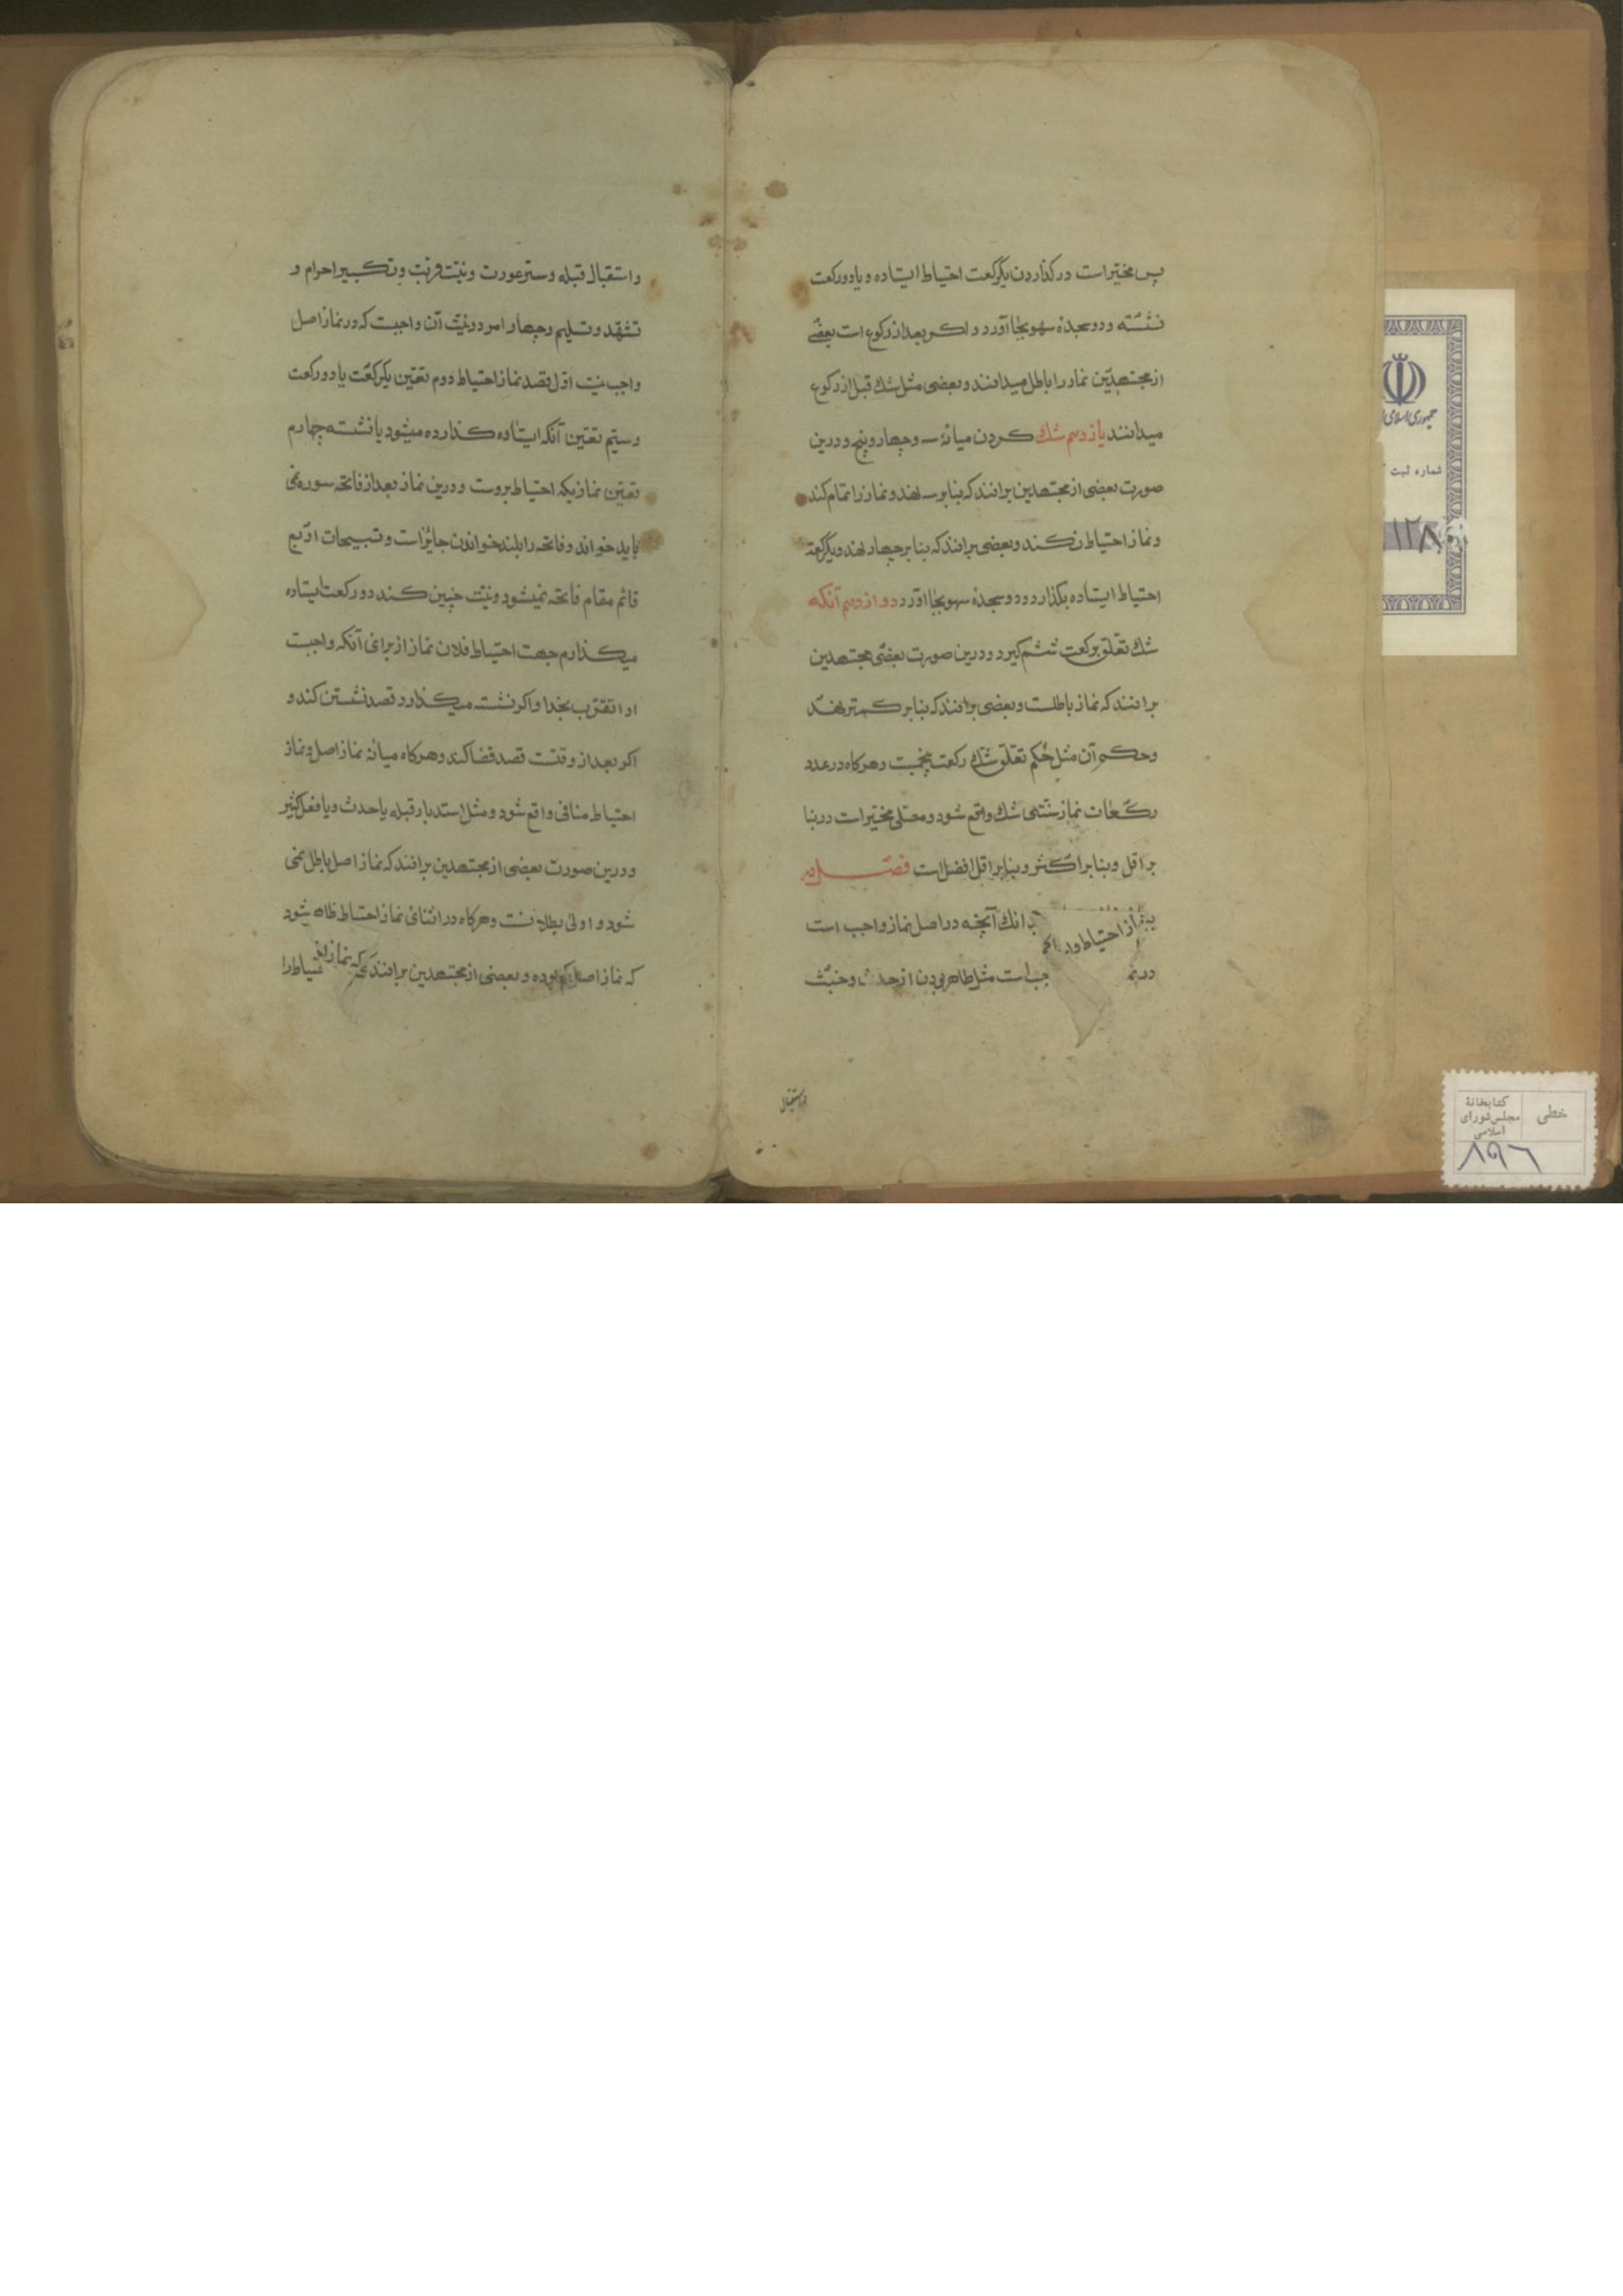 پس مخیّر است در گذاردن یکرکعت احتیاط ایستاده و یا دو رکعت
نشسته و دو سجدهٔ سهو بجا آورد و اکر بعد از رکوع است بعضی
از مجتهدین نماز را باطل میدانند و بعضی مثل شك قبل از رکوع
میدانند یازدهم شك کردن میانهٔ سه و چهار و پنج و درین
صورت بعضی از مجتهدین برانند که بنا بر سه نهد و نماز را تمام کند
و نماز احتیاط نکند و بعضی برانند که بنا بر چهار نهد و یکرکعت
احتیاط ایستاده بگذارد و دو سجدهٔ سهو بجا آورد دوازدهم آنکه
شك تعلّق برکعت ششم کیرد و درین صورت بعضی مجتهدین
برانند که نماز باطلست و بعضی برانند که بنا بر کمتر نهد
و حکم آن مثل حُکم تعلّق شك رکعت پنجمست و هرکاه در عدد
رکعات نماز سنّتی شك واقع شود مصلّی مخیّر است در بنا
بر اقل و بنا بر اکثر و بنا بر اقل افضل است فصل
نماز احتیاط بدانك آنچه در اصل نماز واجب است
در نم جب است مثل طاهر بودن از حدث و خبث
و استقبال
و استقبال قبله و ستر عورت و نیّت قربت و تکبیر احرام و
تشهّد و تسلیم و چهار امر در نیّت آن واجبست که در نماز اصل
واجب نیست اوّل قصد نماز احتیاط دوم تعیّن یکرکعت یا دو رکعت
و سیّم تعیّن آنکه ایستاده کذارده میشود یا نشسته چهارم
تعیّن نمازیکه احتیاط بروست و درین نماز بعد از فاتحه سوره نمی
باید خواند و فاتحه را بلند خواندن جائز است و تسبیحات اربع
قائم مقام فاتحه نمیشود و نیّت چنین کند دو رکعت ایستاده
میکذارم جهت احتیاط فلان نماز از برای آنکه واجبست
ادا تقرّب بخدا و اکر نشسته میکذارد قصد نشستن کند و
اکر بعد از وقتست قصد قضا کند و هرکاه میانهٔ نماز اصل و نماز
احتیاط منافی واقع شود و مثل استدبار قبله یا حدث و یا فعل کثیر
و درین صورت بعضی از مجتهدین برانند که نماز اصل باطل نمی
شود و اولی بطلانست و هرکاه در اثنای نماز احتیاط ظاهر شود
که نماز اصل کم بوده و بعضی از مجتهدین برانند که نماز احتیاط را
جمهوری اسلامی
شماره ثبت
۱۲۸
خطی
کتابخانهٔ
مجلس شورای
اسلامی
۸۹۶